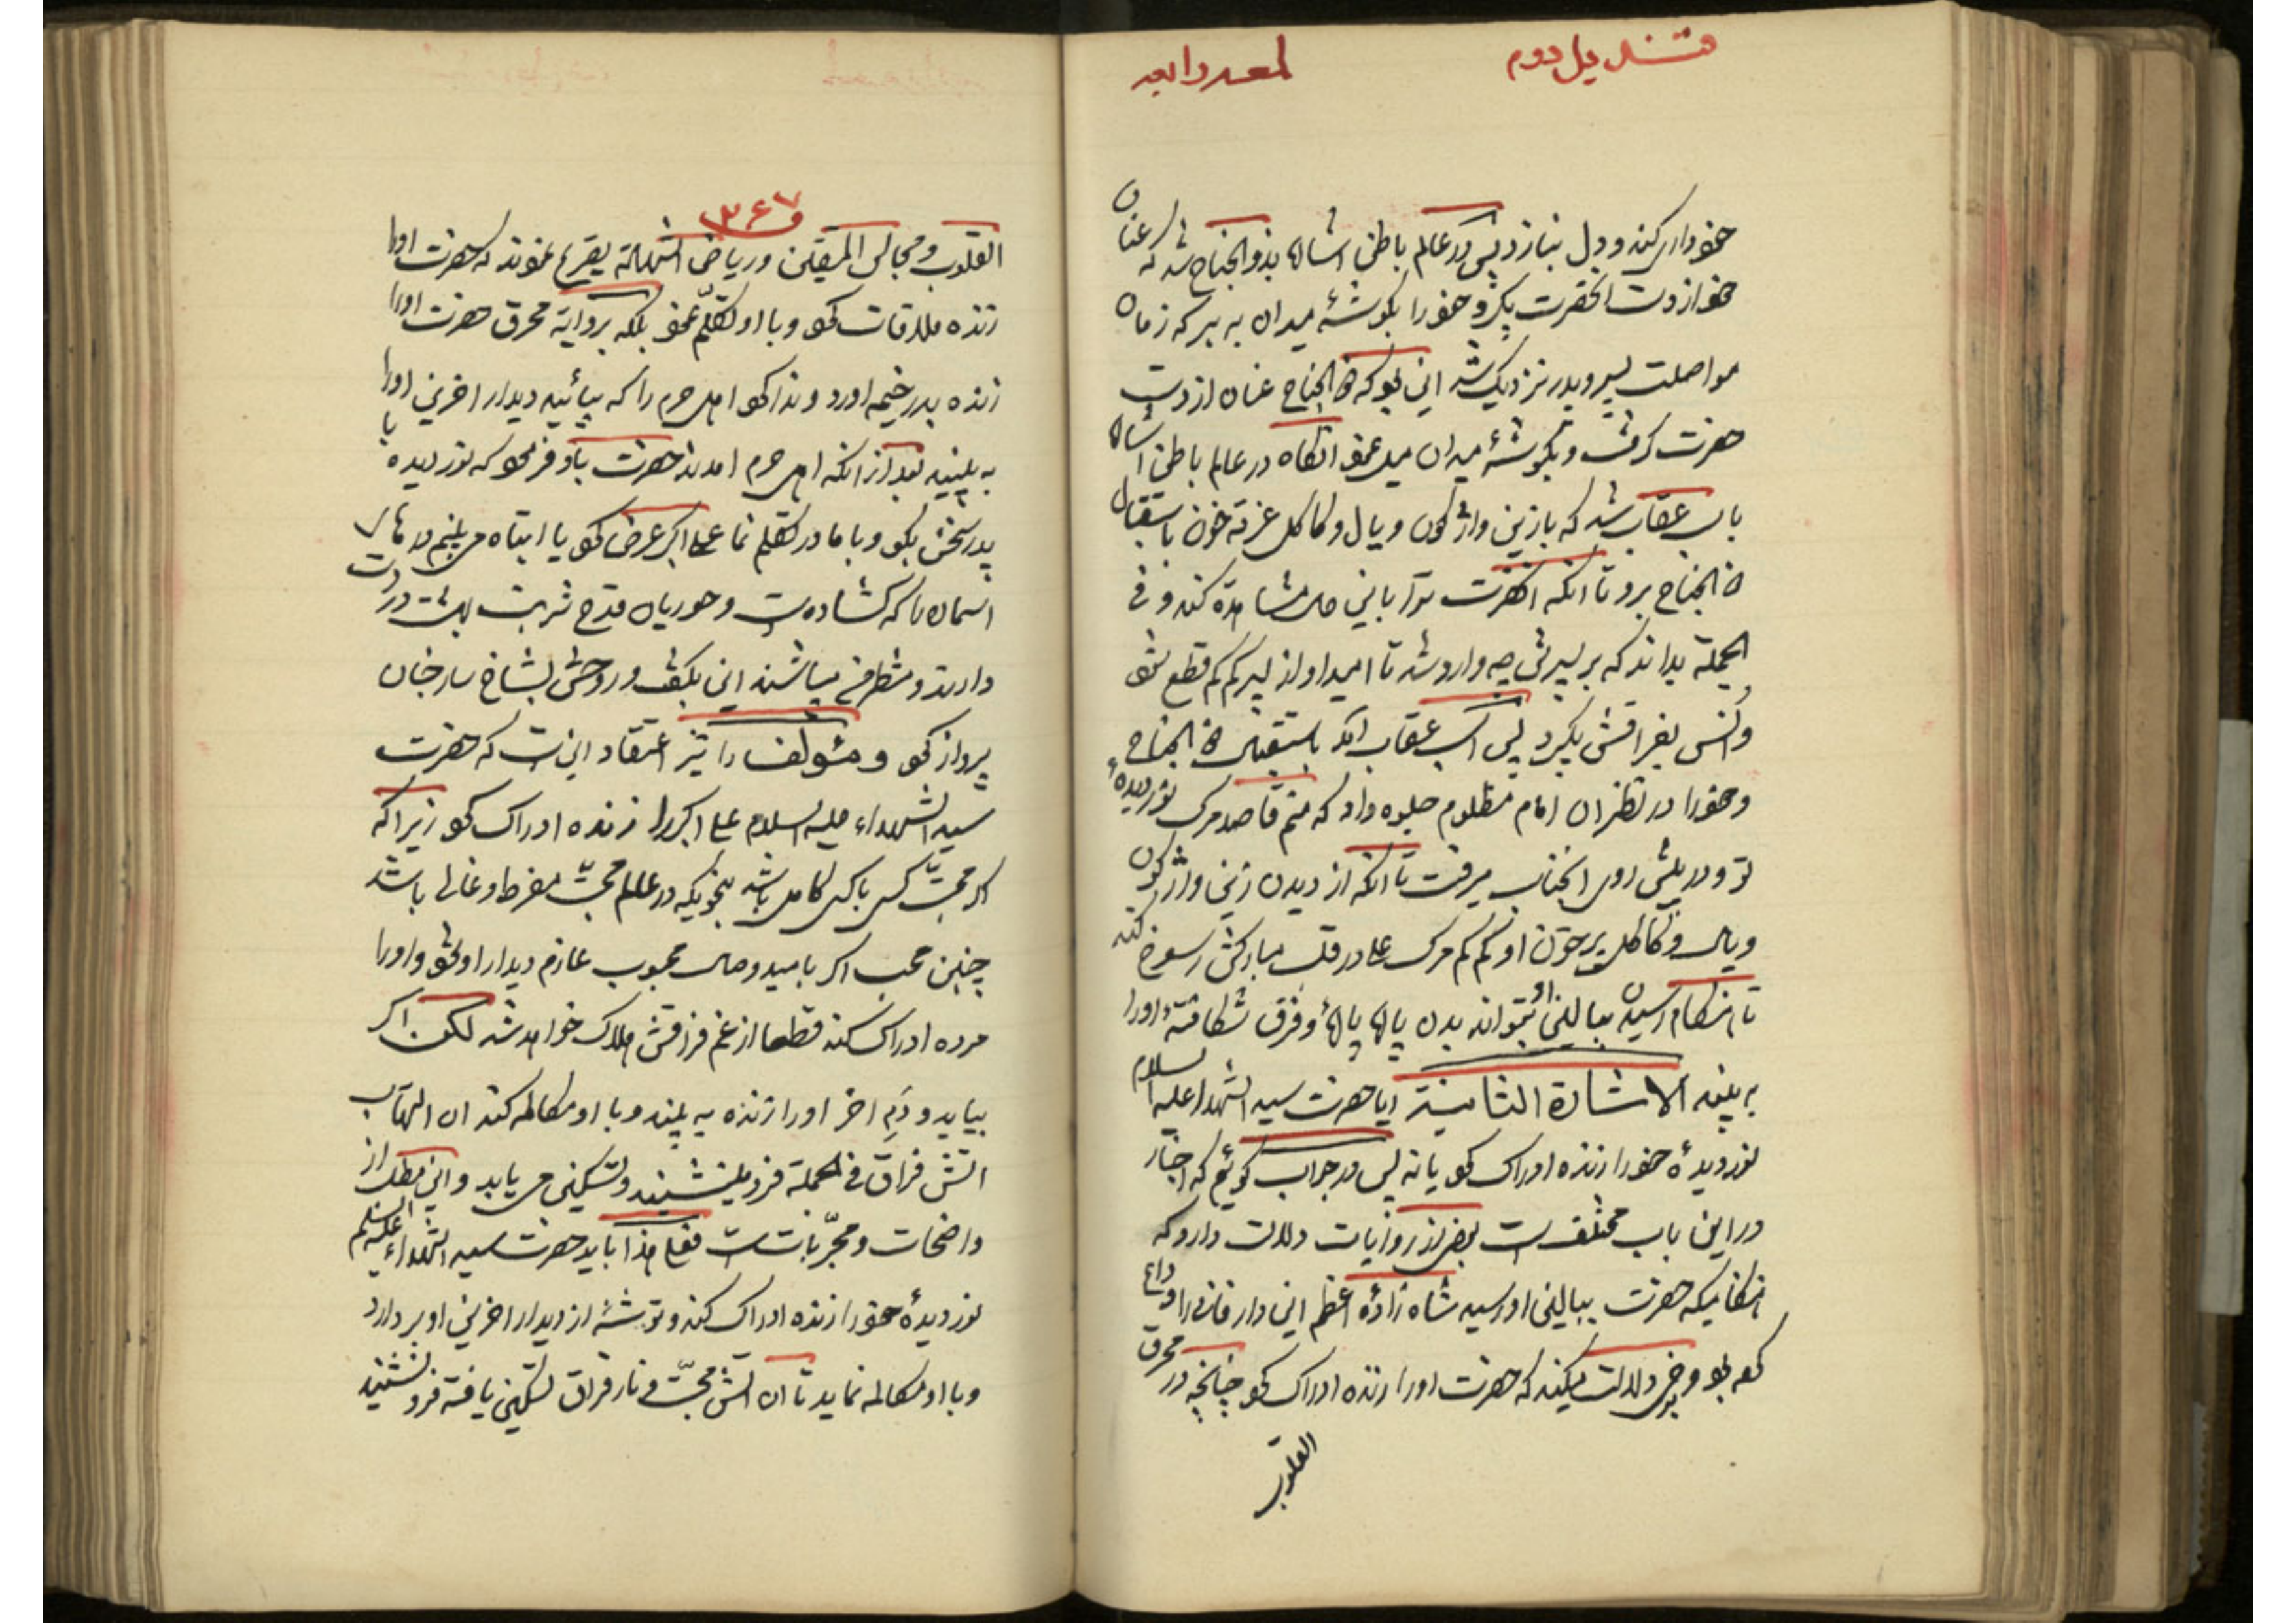 قندیل دوم
لمعه رابعه
خودداری کند و دل بنازد پس در عالم باطن اشاره بذو الجناح شد که عنان
خو از دست انحضرت بگیر و خو را بگوشهٔ میدان به بر که زمان
مواصلت پسر و پدر نزدیک شد این بود که ذو الجناح عنان از دست
حضرت گرفت و بگوشهٔ میدان میل نمود انگاه در عالم باطن اشاره
باسب عقاب شد که بازین واژگون و یال و کاکل غرقه خون باستقبال
ذو الجناح برو تا انکه انحضرت ترا باین حال مشاهده کند و فی
الجملة بداند که بر پسرش چه وارد شد تا امید او از پسر کم کم قطع شود
و انس بفراقش بگیرد پس اسب عقاب امد باستقبال ذو الجناح
و خو را در نظر ان امام مظلوم جلوه داد که منم قاصد مرک نور دیدهٔ
تو و در پیش روی انجناب میرفت تا انکه از دیدن زین واژگون
و یال و کاکل پر خون او کم کم مرک علی در قلب مبارکش رسوخ کند
تا هنگام رسیدن ببالین او بتواند بدن پاره پارهٔ و فرق شکافتهٔ او را
به بیند الاشارة الثامنة ایا حضرت سید الشهداء علیه السلام
نور دیدهٔ خو را زنده ادراک کو یا نه پس در جواب گوئیم که اخبار
در این باب مختلف است بعض از روایات دلالت دارد که
هنگامیکه حضرت ببالین او رسید شاه زادهٔ اعظم این دار فانی را وداع
کرده بو و برخی دلالت میکند که حضرت او را زنده ادراک کو چنانچه در محرق
القلوب
۳۶۷
القلوب و مجالس المتقین و ریاض الشهادة تصریح نموند که حضرت او را
زنده ملاقات کو و با او تکلّم نمو بلکه بروایة محرق حضرت او را
زنده بدر خیمه اورد و ندا کو اهل حرم را که بیائید دیدار اخرین او را
به بینید بعد از انکه اهل حرم امدند حضرت باو فرمو که نور دیده با
پدر سخن بگو و با مادر تکلم نما علی اکبر عرض کو یا ابتاه می بینم درهای
اسمان را که گشاده است و حوریان قدح شربت بهشت در دست
دارند و منتظر من میباشند این بگفت و روحش بشاخسار جنان
پرواز کو و مؤلف را نیز اعتقاد این است که حضرت
سید الشهداء علیه السلام علی اکبر را زنده ادراک کو زیرا که
اکر محبّت کسی با کسی کامل باشد بنحویکه در عالم محبّت مفرط و غالی باشد
چنین محب اکر بامید وصال محبوب عازم دیدار او شو و او را
مرده ادراک کند قطعا از غم فراقش هلاک خواهد شد لکن اکر
بیاید و دَم اخر او را زنده به بیند و با او مکالمه کند ان التهاب
اتش فراق فی الجملة فرو مینشیند و تسکین می یابد و این مطلب از
واضحات و مجرّبات است فعلی هذا باید حضرت سید الشهداء علیه السلام
نور دیدهٔ خو را زنده ادراک کند و توشهٔ از دیدار اخرین او بر دارد
و با او مکالمه نماید تا ان اتش محبّت و نار فراق تسکین یافته فرو نشیند